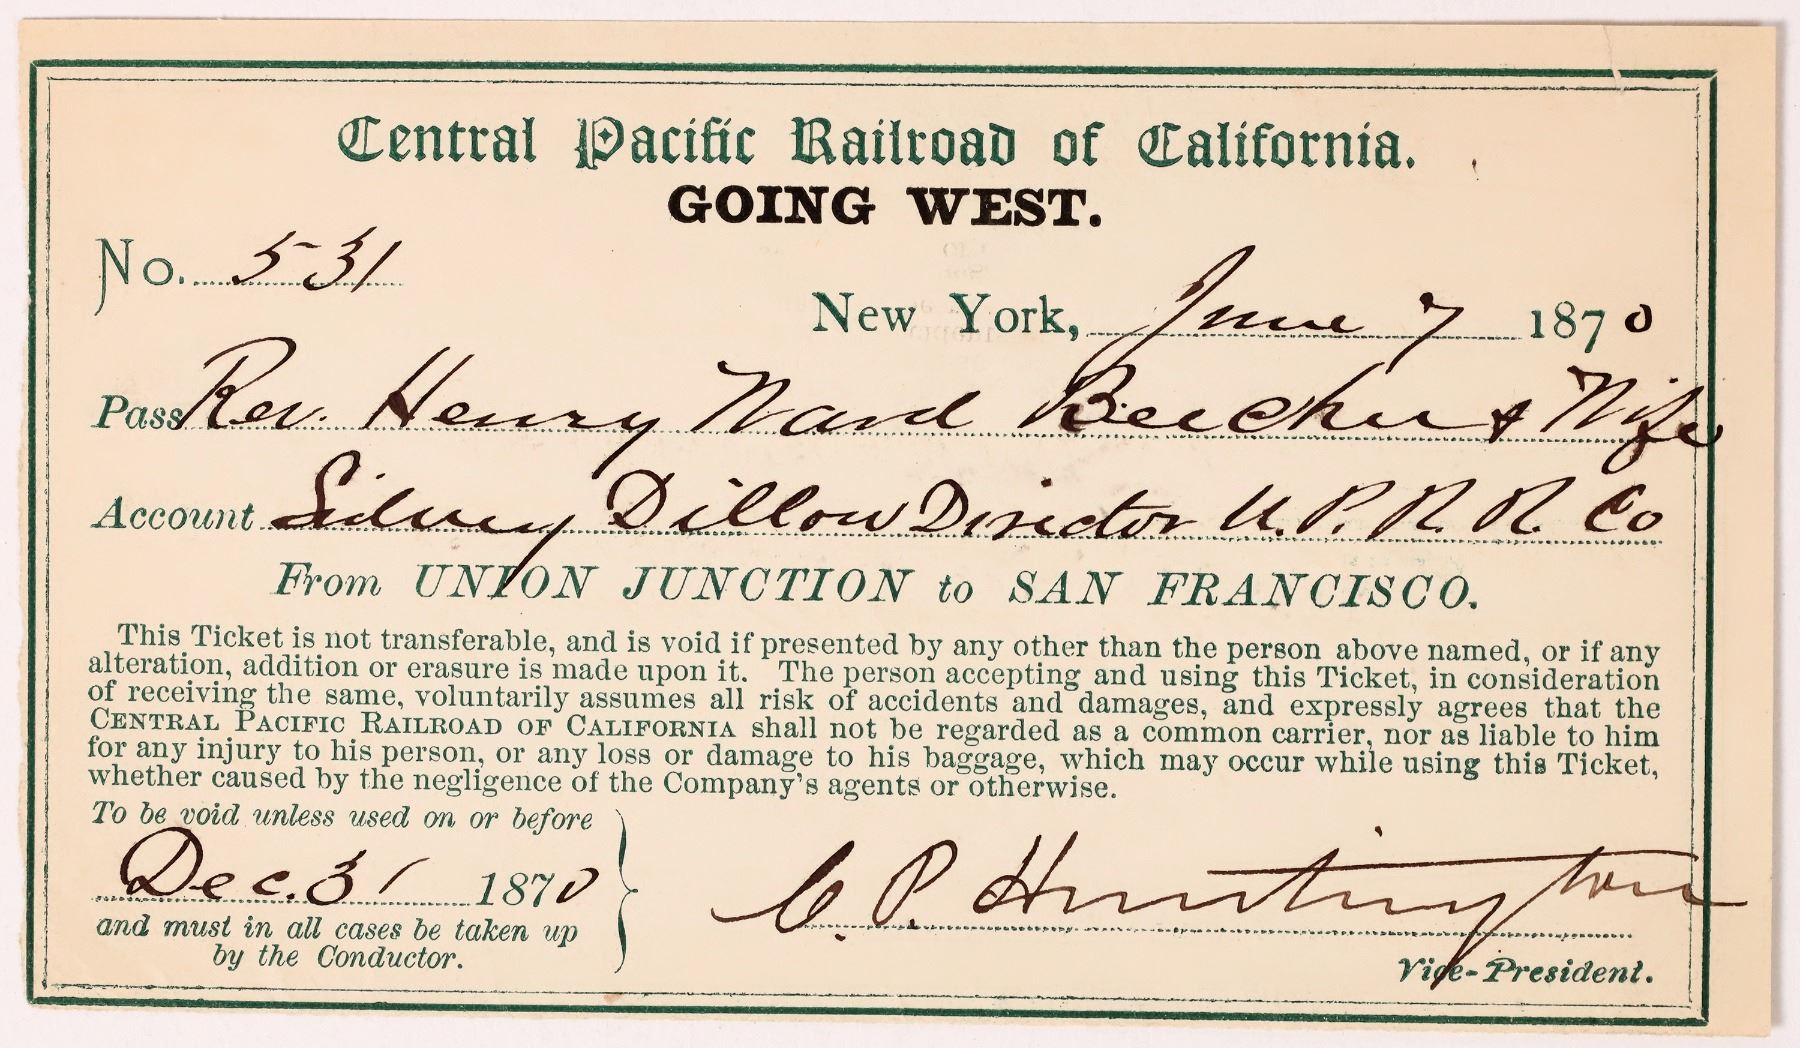 Central Pacific Railroad of California.
GOING WEST.
No. 531
New York, June 7 1870
Pass Rev. Henry Ward Beecher & Wife
Account Sidney Dillow Director U. P. R. R. Co
From UNION JUNCTION to SAN FRANCISCO.
This Ticket is not transferable, and is void if presented by any other than the person above named, or if any
alteration, addition or erasure is made upon it. The person accepting and using this Ticket, in consideration
of receiving the same, voluntarily assumes all risk of accidents and damages, and expressly agrees that the
CENTRAL PACIFIC RAILROAD OF CALIFORNIA shall not be regarded as a common carrier, nor as liable to him
for any injury to his person, or any loss or damage to his baggage, which may occur while using this Ticket,
whether caused by the negligence of the Company's agents or otherwise.
To be void unless used on or before
Dec. 31 1870
and must in all cases be taken up
by the Conductor.
C. P. Huntington
Vice-President.